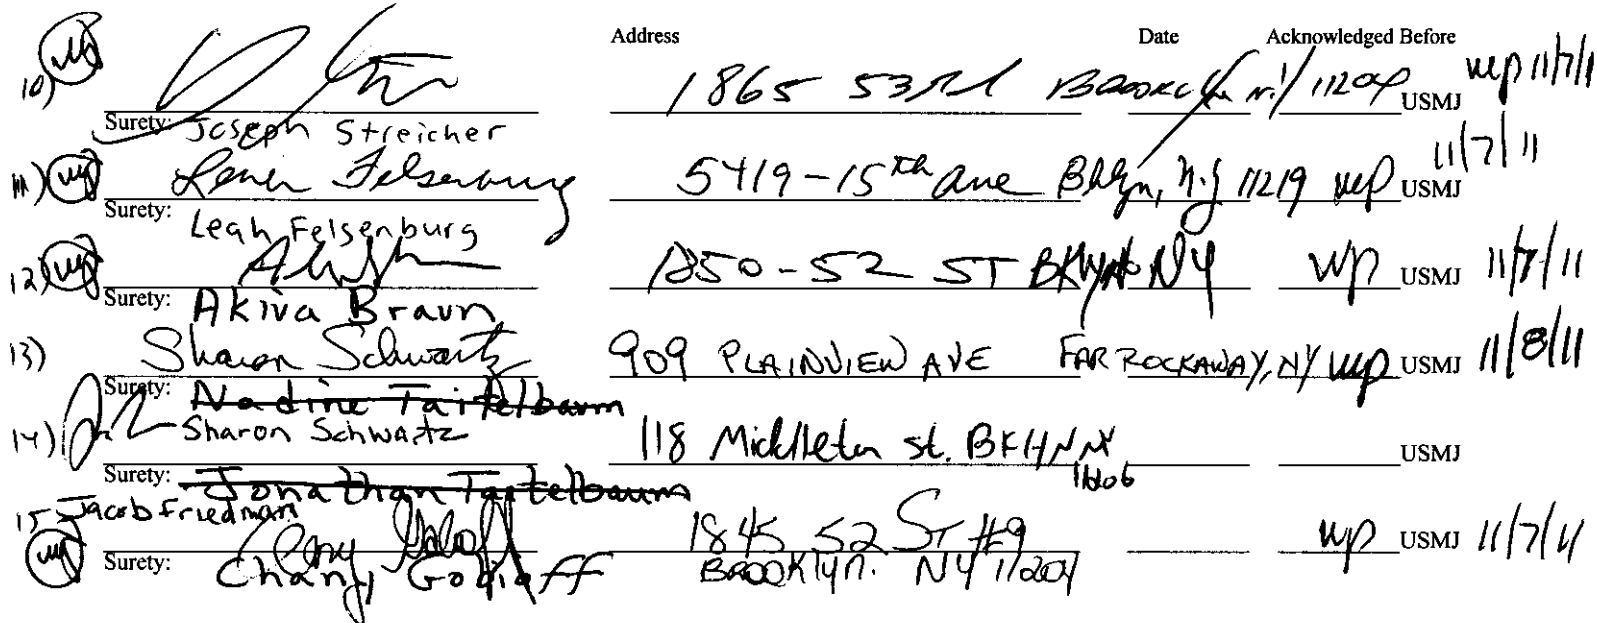 Address Date Acknowledged Before
10) 1865 53rd Brooklyn N.Y 11204 USMJ wp 11/7/11
Surety: Joseph Streicher
11) Leah Felsenburg 5419-15th Ave Bklyn, N.Y 11219 wp USMJ 11/7/11
Surety: Leah Felsenburg
12) 1850-52 ST BKlyn NY wp USMJ 11/7/11
Surety: Akiva Braun
13) Sharon Schwartz 909 PLAINVIEW AVE FAR ROCKAWAY, NY wp USMJ 11/8/11
Surety: Nadine Taitelbaum
Sharon Schwartz
14) 118 Middleton st. BKLYN NY 11206 USMJ
Surety: Jonathan Taitelbaum
Jacob Friedman
15 1845 52 ST #9 wp USMJ 11/7/11
Surety: Chany Gobioff BROOKlyn. NY 11204